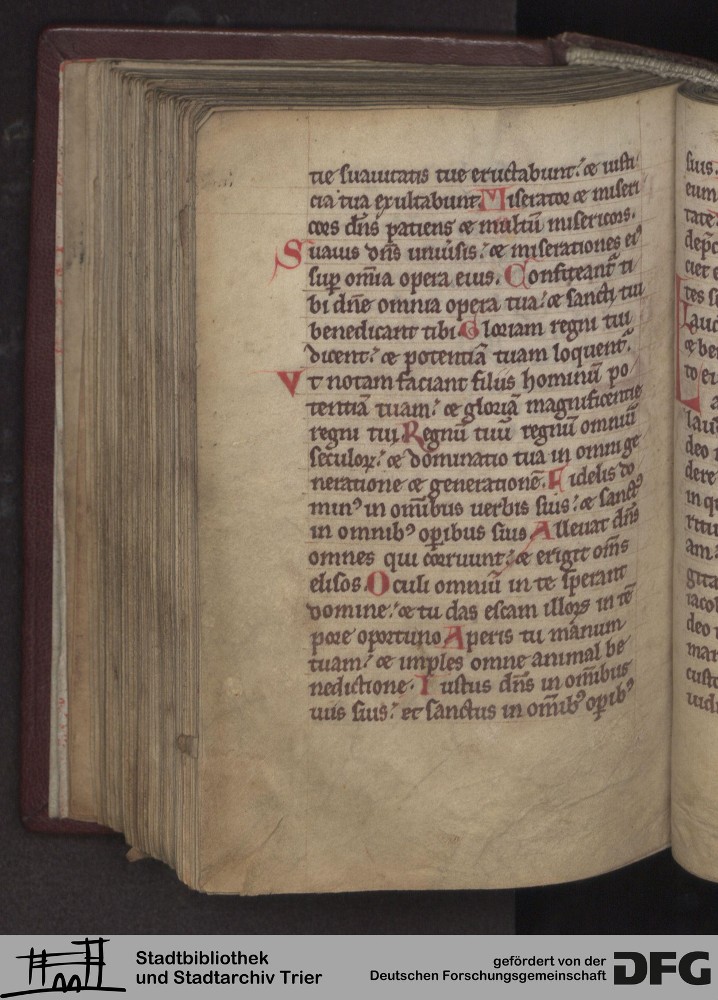 tie suauitatis tue eructabunt: & iusti
cia tua exultabunt. Miserator & miseri
cors dn̄s patiens & multū misericors.
Suauis dn̄s uniūsis: & miserationes eiꝰ
sup̄ om̄ia opera eius. Confiteant᷑ ti
bi dn̄e omnia opera tua: & sancti tui
benedicant tibi. Gloriam regni tui
dicent: & potentiā tuam loquent᷑.
Vt notam faciant filiis hominū po
tentiā tuam: & gloriā magnificentie
regni tui. Regnū tuū regnū omniū
seculoꝝ: & dominatio tua in omni ge
neratione & generationē. Fidelis do
minꝰ in om̄ibus uerbis suis: & sanctꝰ
in omnibꝰ op̄ibus suis. Alleuat dn̄s
omnes qui corruunt: & erigit om̄s
elisos. Oculi omniū in te sperant
domine: & tu das escam illoꝝ in tē
pore oportuno. Aperis tu manum
tuam: & imples omne animal be
nedictione. Iustus dn̄s in om̄ibus
uiis suis: et sanctus in om̄ibꝰ op̄ibꝰ
suis.
eum
tate
dep̄c
ciet e
tes s
Laud
& be
to ei
L a
lau
deo
dere
in q
ritu
am
gita
iacob
deo
mar
custo
uid
Stadtbibliothek
und Stadtarchiv Trier
gefördert von der
Deutschen Forschungsgemeinschaft
DFG